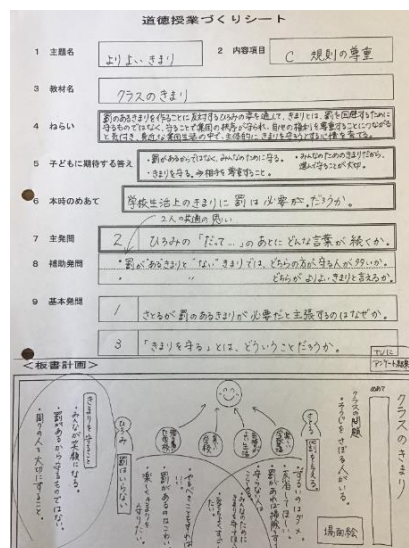 道徳授業づくりシート
1 主題名 よりよいきまり 2 内容項目 C 規則の尊重
3 教材名 クラスのきまり
4 ねらい 罰のあるきまりを作ることに反対するひろみの姿を通して、きまりとは、罰を回避するために
守るものではなく、守ることで集団の秩序が守られ、自他の権利を尊重することにつながる
と気付き、身近な集団生活の中で、主体的にきまりを守ろうとする心情を育てる。
5 子どもに期待する答え ・罰があるからではなく、みんなのために守る。 ・みんなのためのきまりだから、
・きまりを守る。→相手を尊重すること。 進んで守ることが大切。
6 本時のめあて 学校生活上のきまりに罰は必要か。だろうか。
2人の共通の思い
7 主発問 2 ひろみの「だって…」のあとにどんな言葉が続くか。
8 補助発問 ・罰が"ある"きまりと"ない"きまりでは、どちらの方が守る人が多いか。
・ 〃 どちらがよりよいきまりと言えるか。
9 基本発問 1 さとるが罰のあるきまりが必要だと主張するのはなぜか。
3 「きまりを守る」とは、どういうことだろうか。
<板書計画>
アンケート結果
めあて
クラスのきまり
クラスの問題
・そうじをさぼる人がいる。
場面絵
さとる
罰を与える
・ずるいのはダメ。
ひろみ
罰はいらない
きまりを守ること
・みんなが笑顔になる。
・罰があるから守るものではない。
・周りの人を大切にすること。